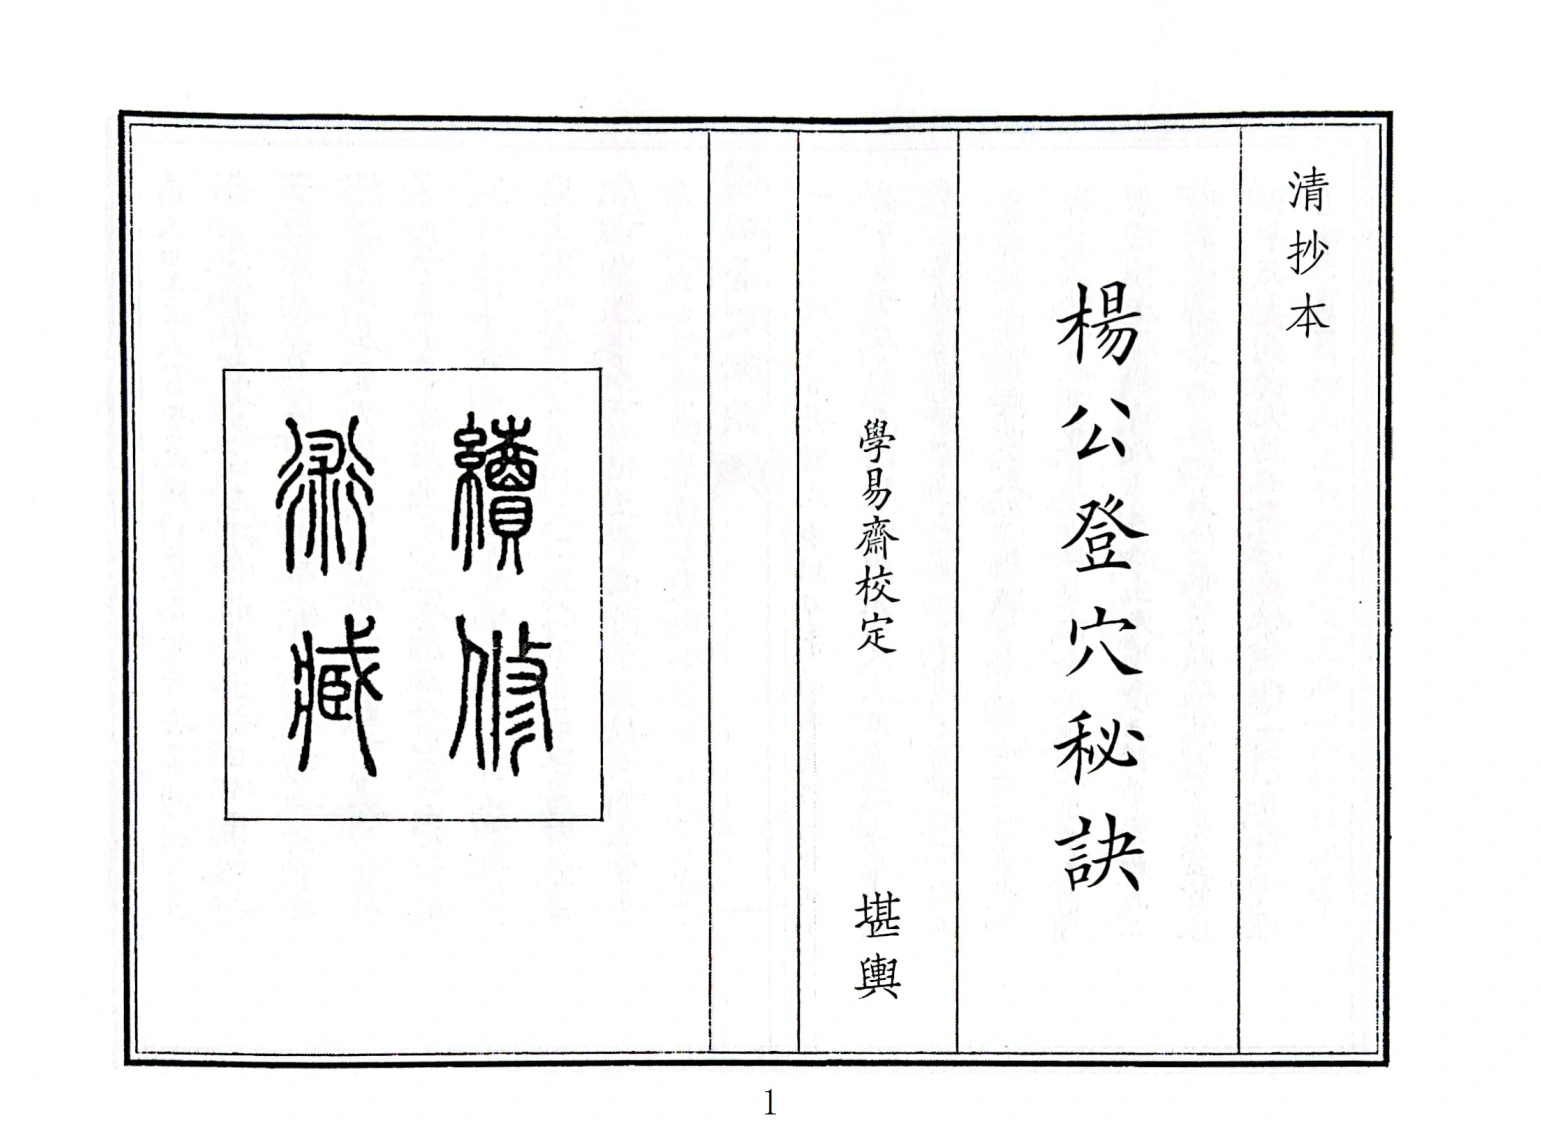 清抄本
楊公登穴秘訣
學易齋校定 堪輿
續修
術藏
1